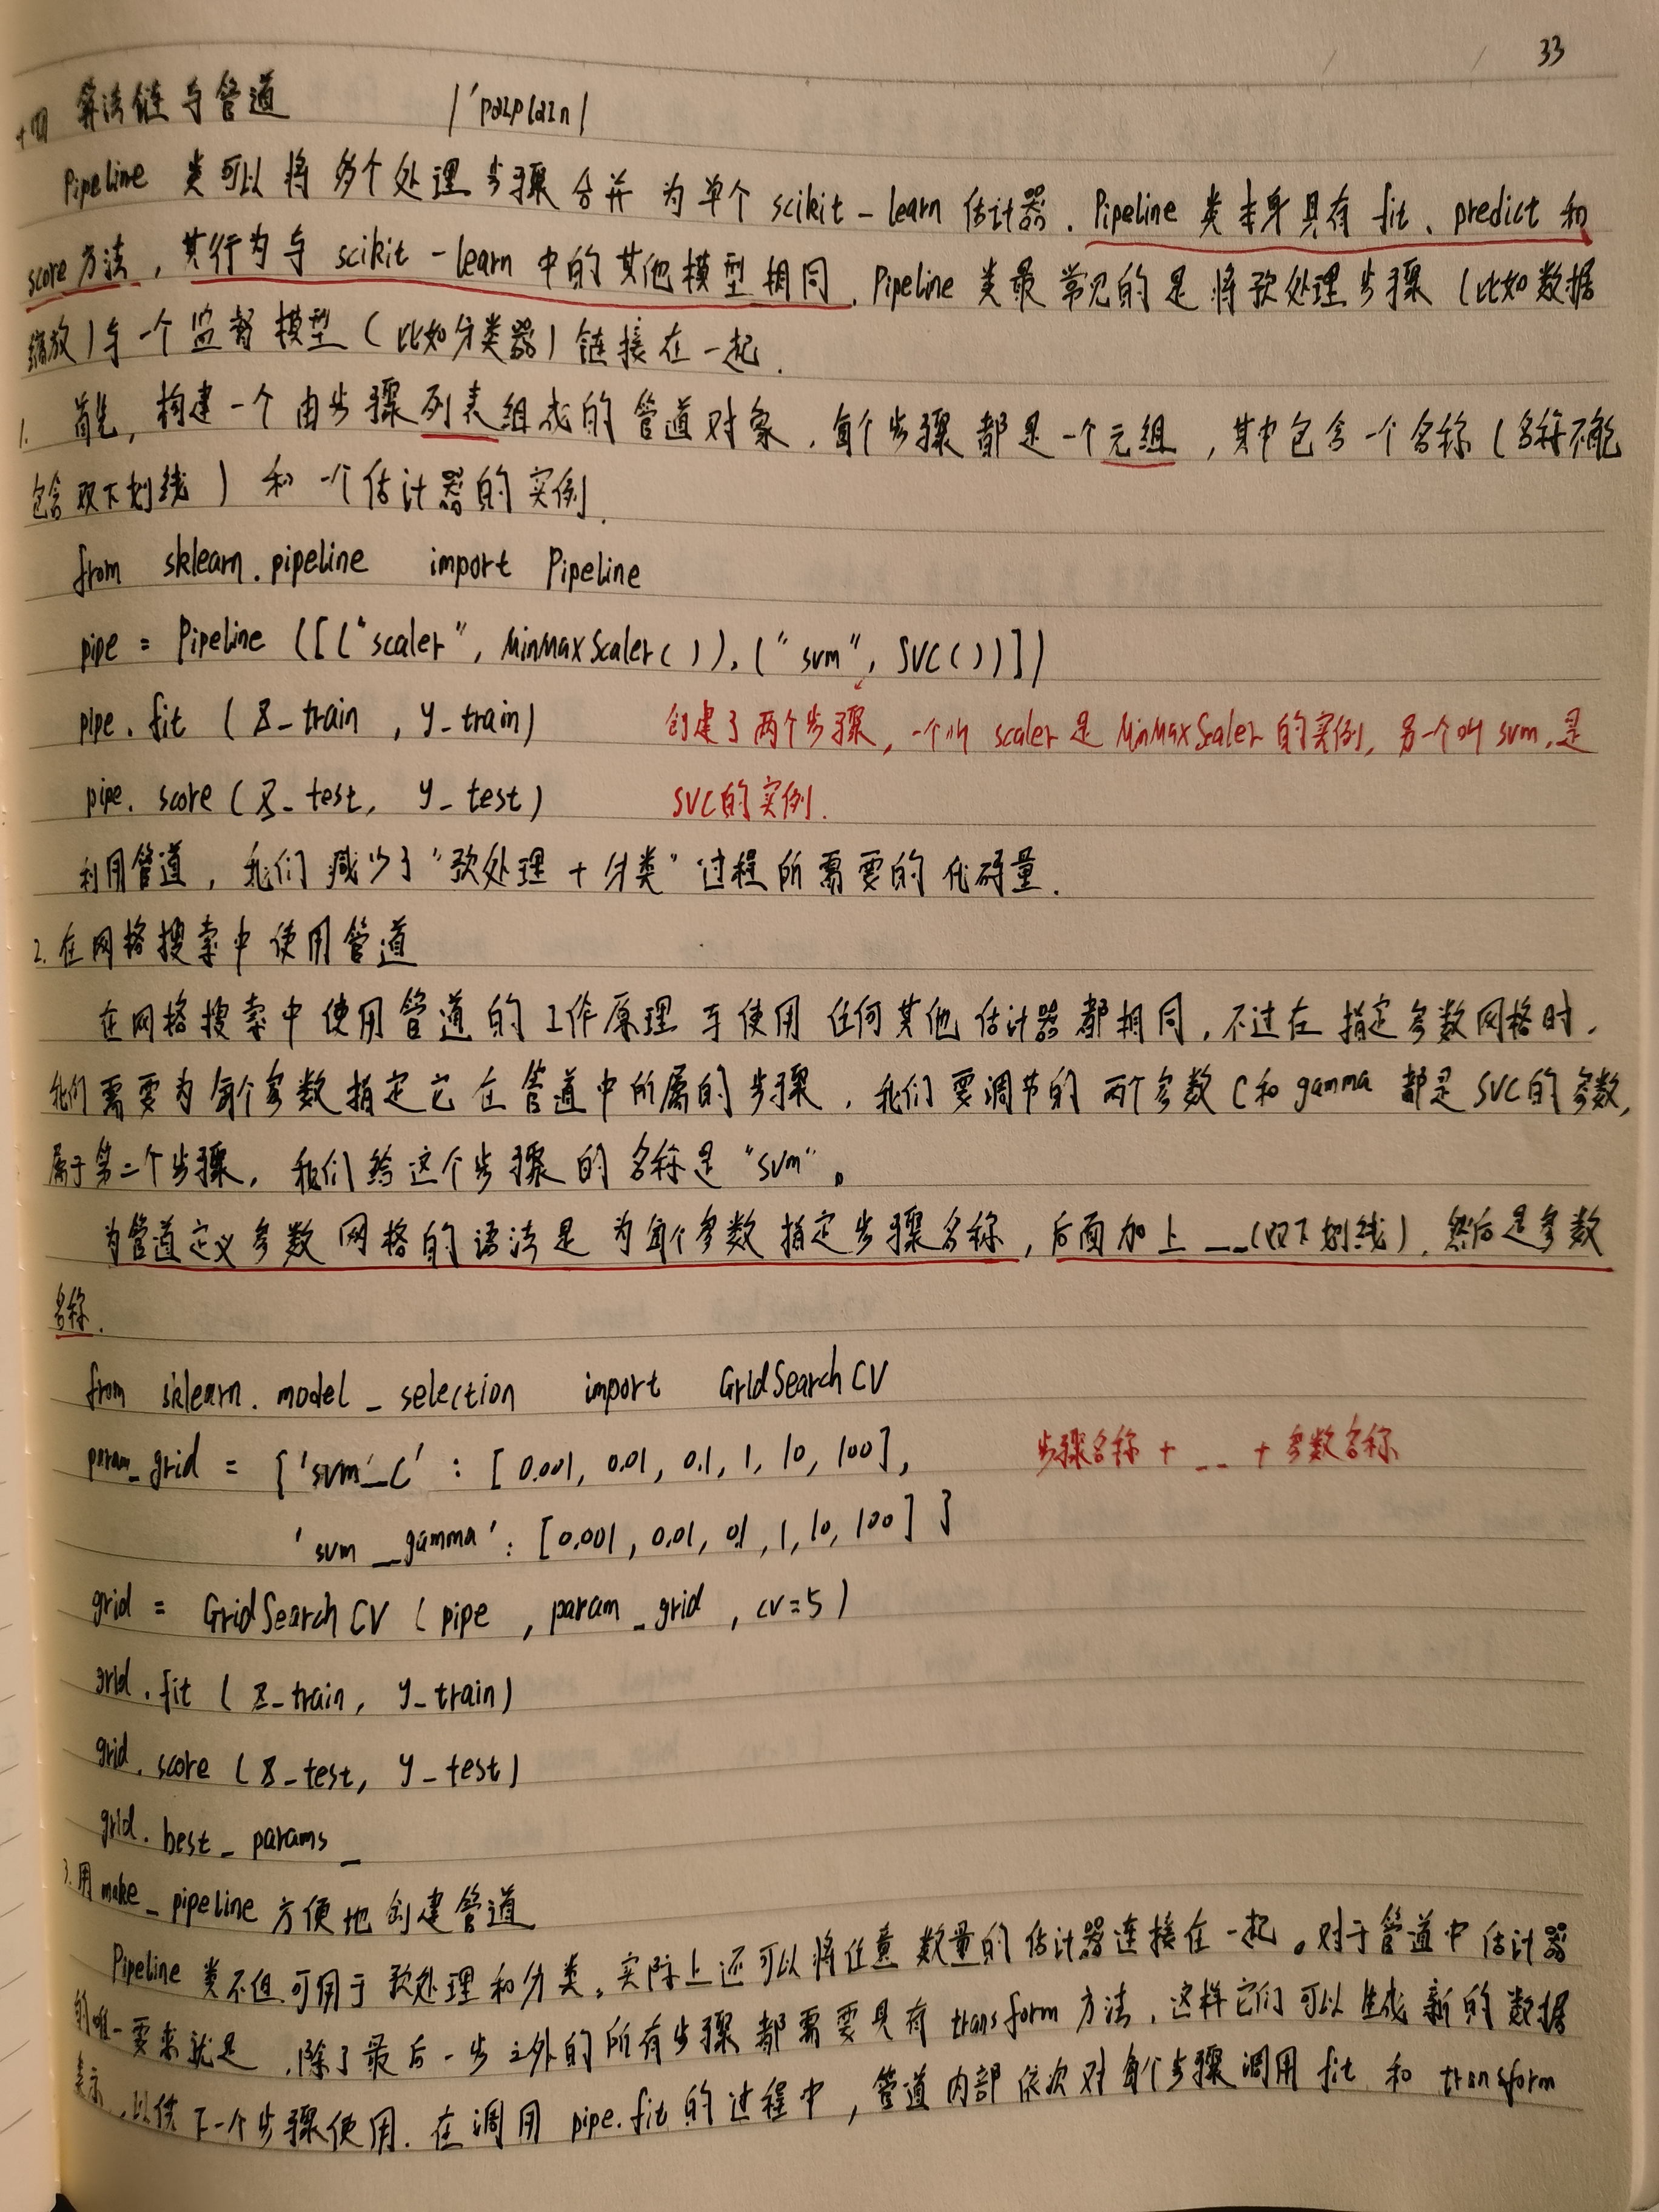 33
十四 算法链与管道 /ˈpaɪplaɪn/
Pipeline 类可以将多个处理步骤合并为单个 scikit-learn 估计器. Pipeline 类本身具有 fit、predict 和
score 方法, 其行为与 scikit-learn 中的其他模型相同. Pipeline 类最常见的是将预处理步骤 (比如数据
缩放) 与一个监督模型 (比如分类器) 链接在一起.
1. 首先, 构建一个由步骤列表组成的管道对象. 每个步骤都是一个元组, 其中包含一个名称 (名称不能
包含双下划线) 和一个估计器的实例.
from sklearn.pipeline import Pipeline
pipe = Pipeline ([("scaler", MinMaxScaler()), ("svm", SVC())])
pipe.fit (X_train, y_train) 创建了两个步骤, 一个叫 scaler 是 MinMaxScaler 的实例, 另一个叫 svm, 是
pipe.score (X_test, y_test) SVC的实例.
利用管道, 我们减少了"预处理 + 分类"过程所需要的代码量.
2. 在网格搜索中使用管道
在网格搜索中使用管道的工作原理与使用任何其他估计器都相同, 不过在指定参数网格时,
我们需要为每个参数指定它在管道中所属的步骤. 我们要调节的两个参数 C和 gamma 都是 SVC的参数,
属于第二个步骤. 我们给这个步骤的名称是 "svm"。
为管道定义参数网格的语法是为每个参数指定步骤名称, 后面加上 __(双下划线), 然后是参数
名称.
from sklearn.model_selection import GridSearchCV
param_grid = {'svm__C' : [0.001, 0.01, 0.1, 1, 10, 100], 步骤名称 + __ + 参数名称
'svm__gamma' : [0.001, 0.01, 0.1, 1, 10, 100] }
grid = GridSearchCV (pipe, param_grid, cv=5)
grid.fit (X_train, y_train)
grid.score (X_test, y_test)
grid.best_params_
3. 用 make_pipeline 方便地创建管道
Pipeline 类不但可用于预处理和分类, 实际上还可以将任意数量的估计器连接在一起。对于管道中估计器
的唯一要求就是, 除了最后一步之外的所有步骤都需要具有 transform 方法, 这样它们可以生成新的数据
表示, 以供下一个步骤使用. 在调用 pipe.fit 的过程中, 管道内部依次对每个步骤调用 fit 和 transform